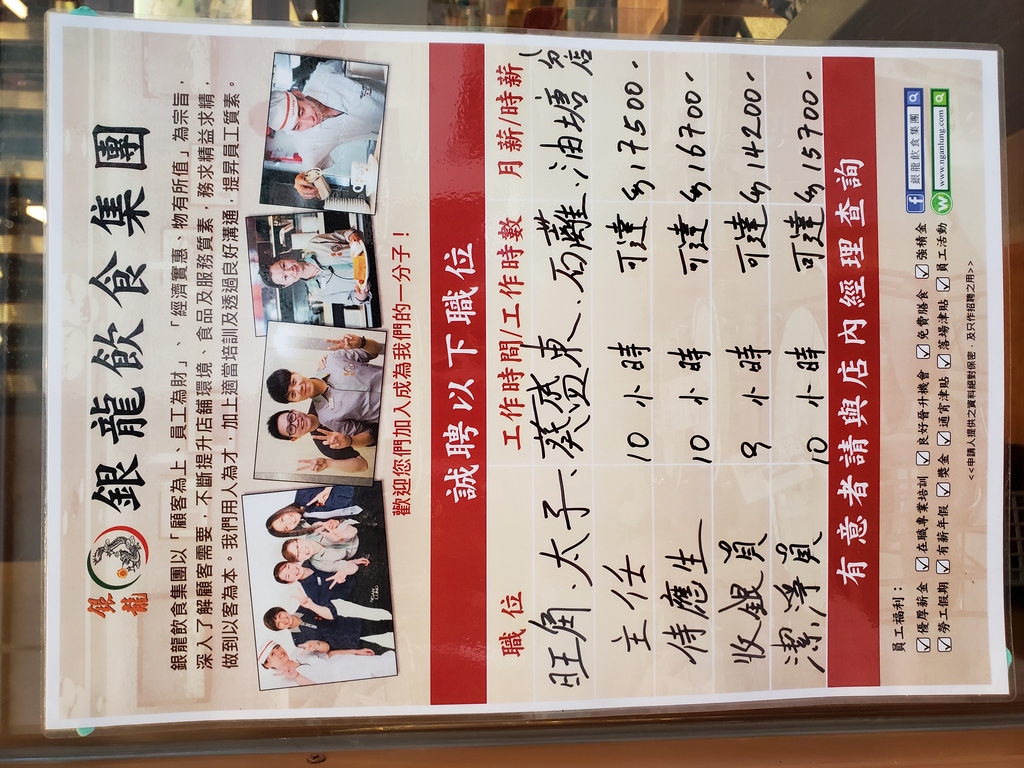 銀龍
銀龍飲食集團
銀龍飲食集團以「顧客為上、員工為財」、「經濟實惠、物有所值」為宗旨,
深入了解顧客需要,不斷提升店舖環境、食品及服務質素,務求精益求精,
做到以客為本。我們用人為才,加上適當培訓及透過良好溝通,提昇員工質素。
歡迎您們加入成為我們的一分子!
誠聘以下職位
職位 工作時間/工作時數 月薪/時薪
旺角.太子.葵盛東.石蔭.油塘(分店
主任 10小時 可達$17500.
侍應生 10小時 可達$16700.
收銀員 9小時 可達$14200.
潔淨員 10小時 可達$15700.
有意者請與店內經理查詢
員工福利:
優厚薪金 在職專業培訓 良好晉升機會 免費膳食 強積金
勞工假期 有薪年假 獎金 通宵津貼 落場津貼 員工活動
<<申請人提供之資料絕對保密,及只作招聘之用>>
銀龍飲食集團
www.nganlung.com